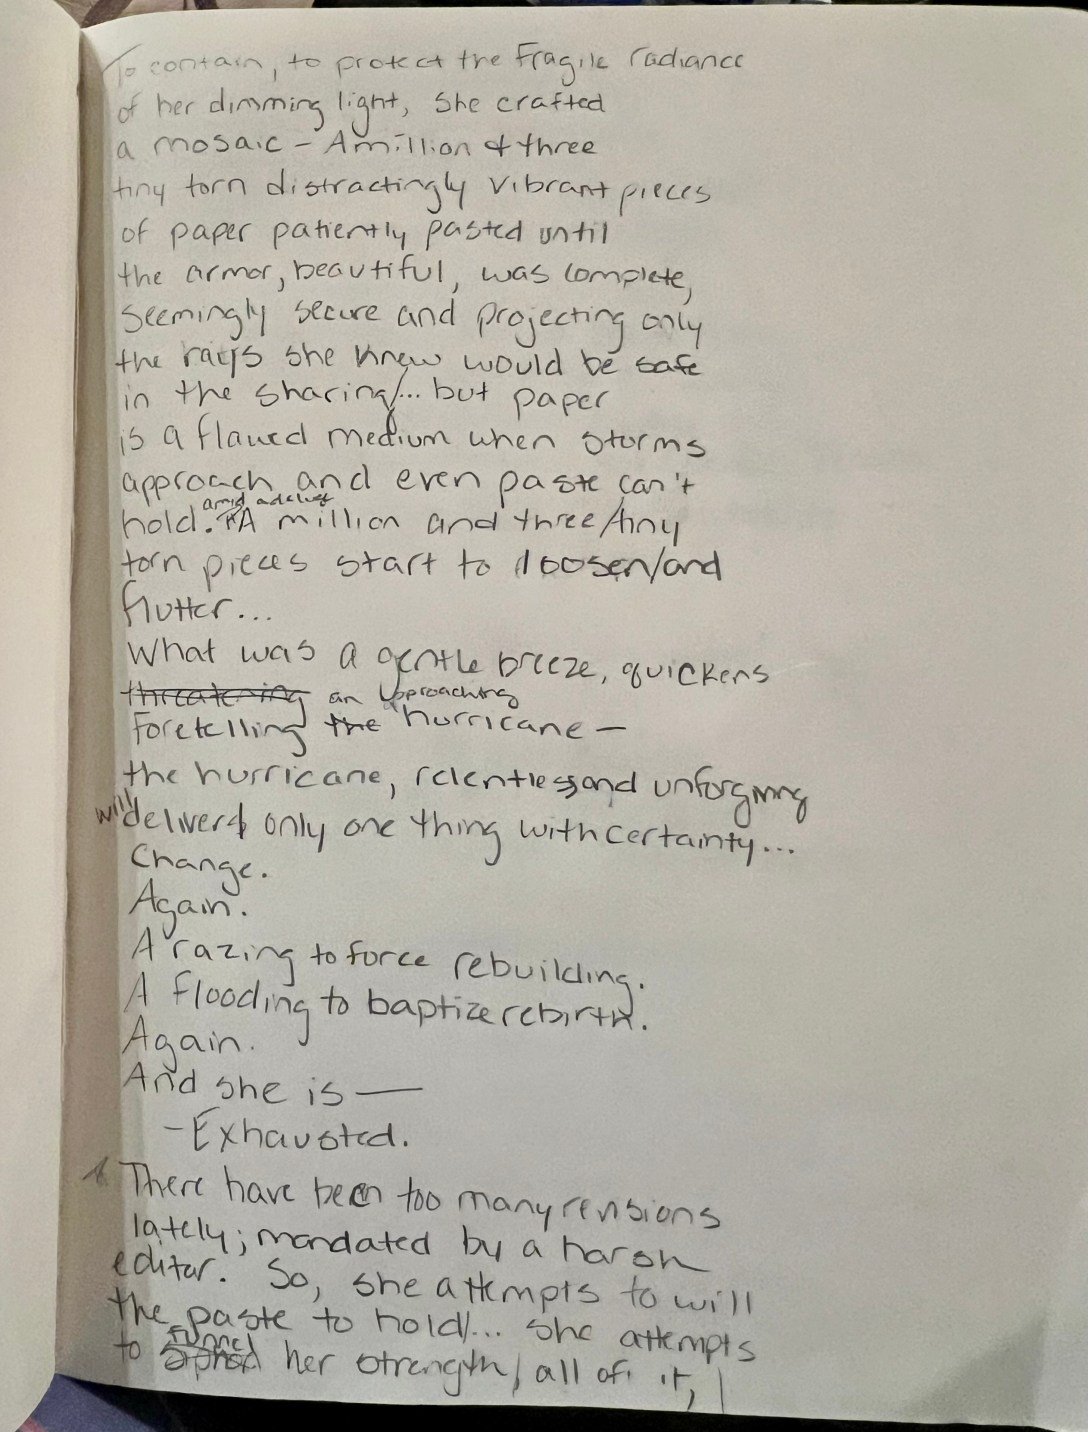 To contain, to protect the Fragile radiance
of her dimming light, she crafted
a mosaic - A million & three
tiny torn distractingly vibrant pieces
of paper patiently pasted until
the armor, beautiful, was complete,
seemingly secure and projecting only
the rays she knew would be safe
in the sharing/... but paper
is a flawed medium when storms
approach and even paste can't
amid a deluge
hold. A million and three/tiny
torn pieces start to loosen/and
flutter...
What was a gentle breeze, quickens
threatening an approaching
Foretelling the hurricane —
the hurricane, relentless and unforgiving
will deliver only one thing with certainty...
Change.
Again.
A razing to force rebuilding.
A flooding to baptize rebirth.
Again.
And she is —
-Exhausted.
There have been too many revisions
lately; mandated by a harsh
editor. So, she attempts to will
the paste to hold/... she attempts
funnel
to her strength/ all of it, |